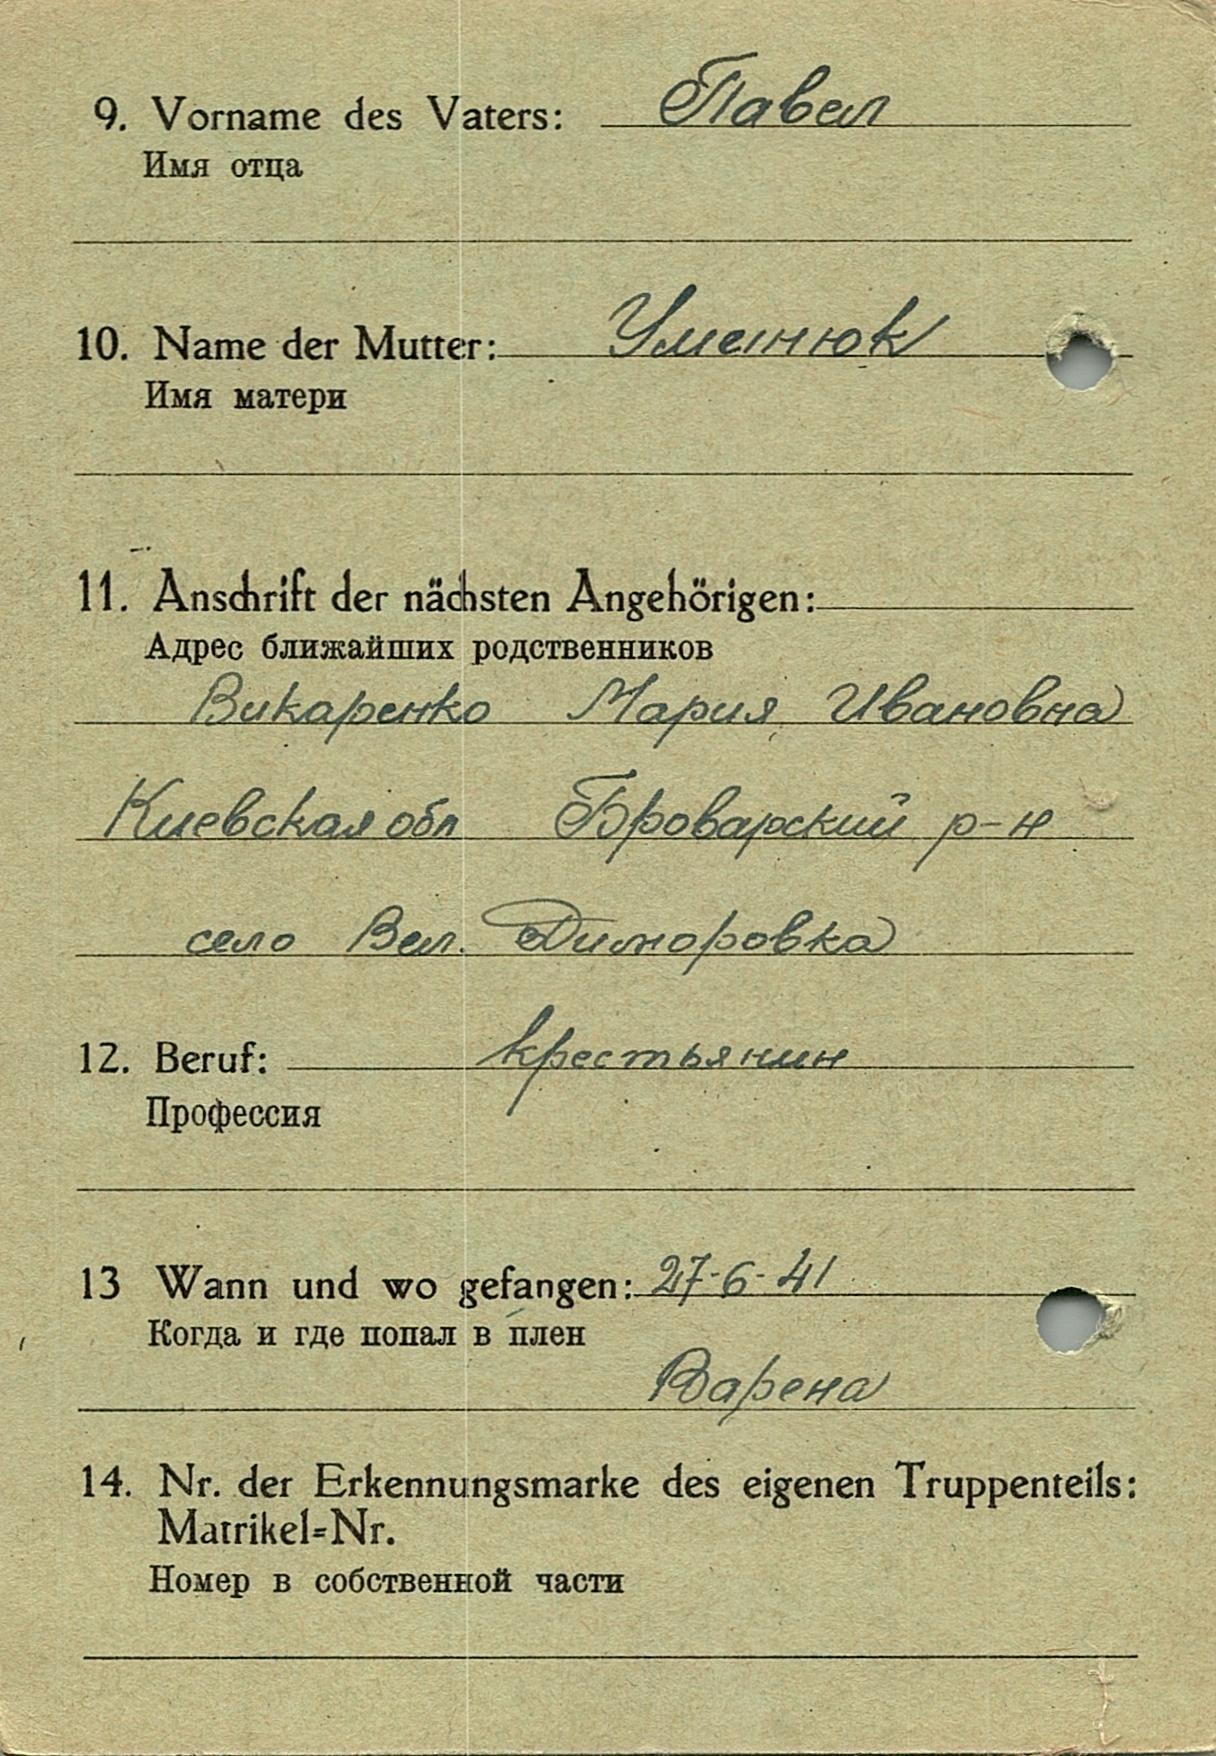 9. Vorname des Vaters: Павел
Имя отца
10. Name der Mutter: Уменюк
Имя матери
11. Anschrift der nächsten Angehörigen:
Адрес ближайших родственников
Викаренко Мария Ивановна
Киевская обл Броварский р-н
село Вел. Диморовка
12. Beruf: крестьянин
Профессия
13 Wann und wo gefangen: 27-6-41
Когда и где попал в плен
Варена
14. Nr. der Erkennungsmarke des eigenen Truppenteils:
Matrikel=Nr.
Номер в собственной части